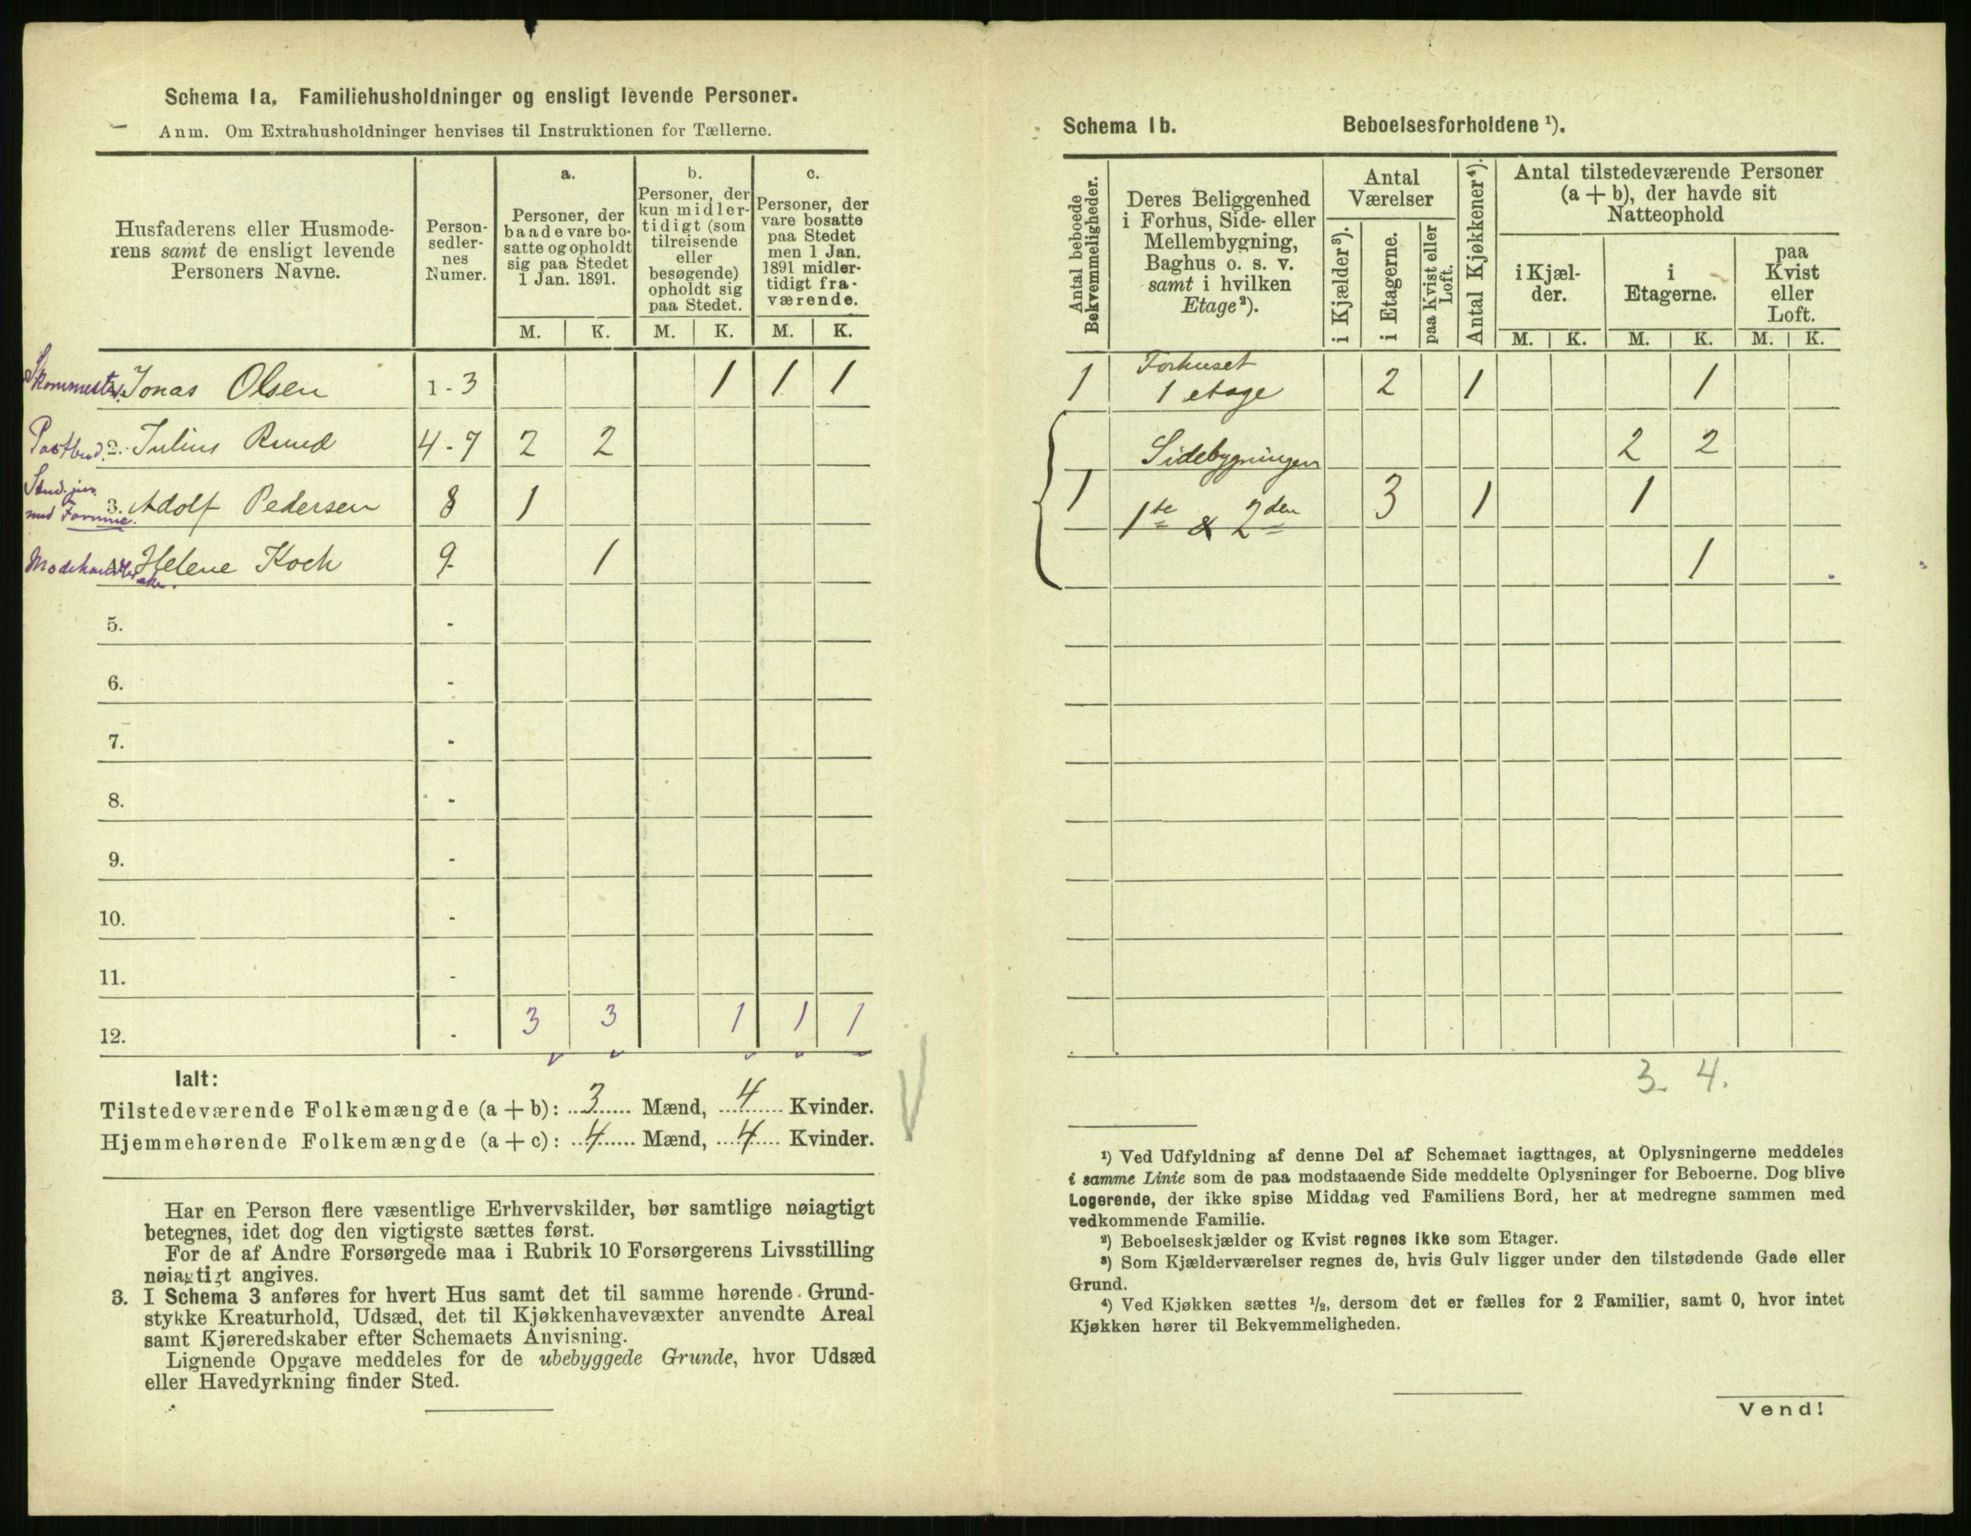 Schema 1a. Familiehusholdninger og ensligt levende Personer.
Anm. Om Extrahusholdninger henvises til Instruktionen for Tællerne.
Husfaderens eller Husmoderens samt de ensligt levende Personers Navne.
Personsedlernes Numer.
a. Personer, der baade vare bosatte og opholdt sig paa Stedet 1 Jan. 1891.
b. Personer, der kun midlertidigt (som tilreisende eller besøgende) opholdt sig paa Stedet.
c. Personer, der vare bosatte paa Stedet men 1 Jan. 1891 midlertidigt fraværende.
M. K. M. K. M. K.
Jonas Olsen 1-3 1 1 1
Postbud. 2. Julius Ruud 4-7 2 2
Stud. jur. 3. Adolf Pedersen 8 1
Helene Koch 9 1
5. -
6. -
7. -
8. -
9. -
10. -
11. -
12. - 3 3 1 1 1
Ialt:
Tilstedeværende Folkemængde (a + b): 3 Mænd, 4 Kvinder.
Hjemmehørende Folkemængde (a + c): 4 Mænd, 4 Kvinder.
Har en Person flere væsentlige Erhvervskilder, bør samtlige nøiagtigt
betegnes, idet dog den vigtigste sættes først.
For de af Andre Forsørgede maa i Rubrik 10 Forsørgerens Livsstilling
nøiagtigt angives.
3. I Schema 3 anføres for hvert Hus samt det til samme hørende Grund-
stykke Kreaturhold, Udsæd, det til Kjøkkenhavevæxter anvendte Areal
samt Kjøreredskaber efter Schemaets Anvisning.
Lignende Opgave meddeles for de ubebyggede Grunde, hvor Udsæd
eller Havedyrkning finder Sted.
Schema 1b. Beboelsesforholdene ¹).
Antal beboede Bekvemmeligheder.
Deres Beliggenhed i Forhus, Side- eller Mellembygning, Baghus o. s. v. samt i hvilken Etage²).
Antal Værelser
i Kjælder³).
i Etagerne.
paa Kvist eller Loft.
Antal Kjøkkener⁴).
Antal tilstedeværende Personer (a + b), der havde sit Natteophold
i Kjælder.
i Etagerne.
paa Kvist eller Loft.
M. K. M. K. M. K.
1 Forhuset 1 etage 2 1 1
Sidebygningen 2 2
1 1te & 2den 3 1 1
1
3. 4.
¹) Ved Udfyldning af denne Del af Schemaet iagttages, at Oplysningerne meddeles
i samme Linie som de paa modstaaende Side meddelte Oplysninger for Beboerne. Dog blive
Logerende, der ikke spise Middag ved Familiens Bord, her at medregne sammen med
vedkommende Familie.
²) Beboelseskjælder og Kvist regnes ikke som Etager.
³) Som Kjælderværelser regnes de, hvis Gulv ligger under den tilstødende Gade eller
Grund.
⁴) Ved Kjøkken sættes ½, dersom det er fælles for 2 Familier, samt 0, hvor intet
Kjøkken hører til Bekvemmeligheden.
Vend!